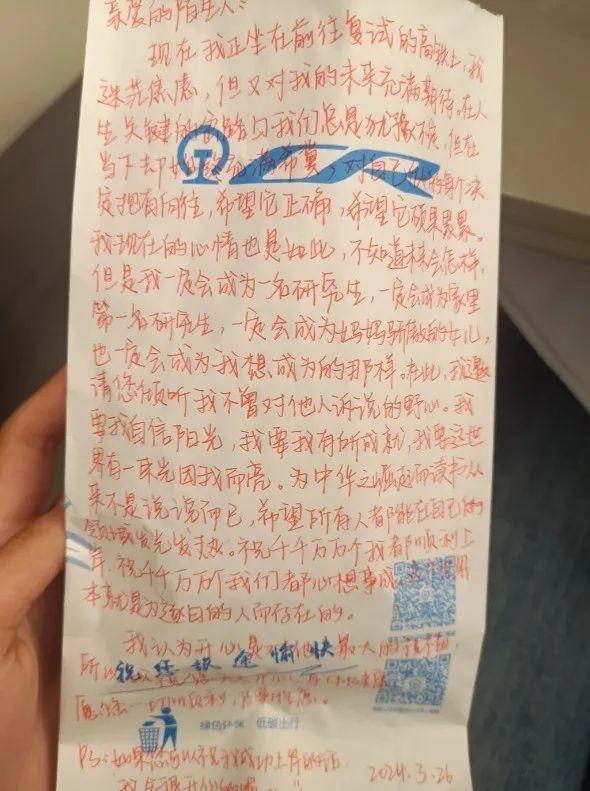 亲爱的陌生人：
现在我正坐在前往复试的高铁上，我
迷茫焦虑，但又对我的未来充满期待。在人
生关键的岔路口我们总是犹豫不候，但在
当下却始终充满希冀，对自己做的每个决
定抱有向往，希望它正确，希望它硕果累累。
我现在的心情也是如此，不知道未来会怎样，
但是我一定会成为一名研究生，一定会成为家里
第一名研究生，一定会成为妈妈骄傲的女儿，
也一定会成为我想成为的那样。在此，我邀
请您倾听我不曾对他人诉说的野心。我
要我自信阳光，我要我有所成就，我要这世
界有一束光因我而亮。为中华之崛起而读书从
来不是说说而已，希望所有人都能在自己的
领域发光发热。祝千千万万个我都顺利上
岸，祝千千万万个我们都心想事成。
本就是为逐日的人而存在的。
我认为开心是对 最大的
所以
祝您旅途愉快
愿您一切顺利，
绿色环保 低碳出行
PS：如果您可以祝我成功上岸的话
我会很开心的
2024.3.26